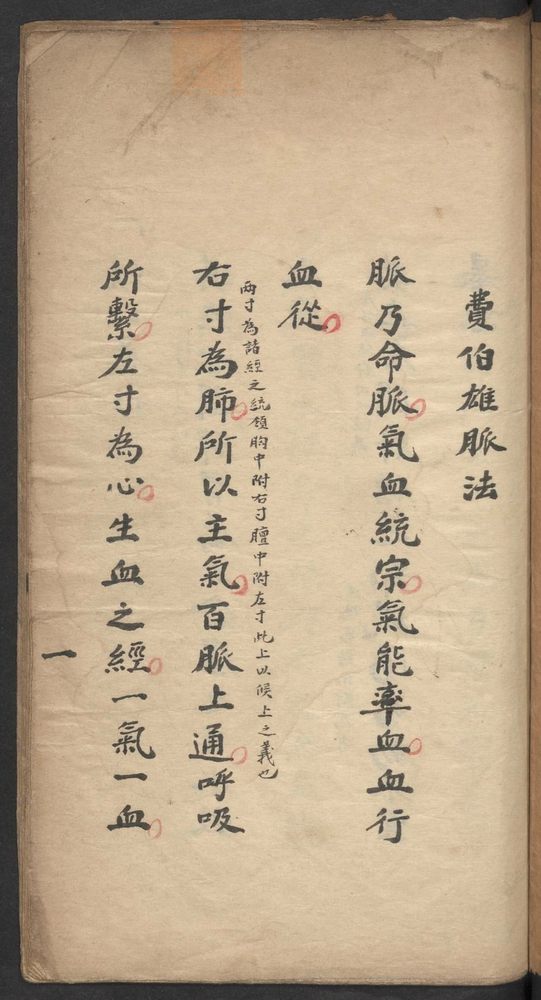 費伯雄脈法
脈乃命脈氣血統宗氣能率血血行
血從
兩寸為諸經之統領胸中附右寸膻中附左寸此上以候上之義也
右寸為肺所以主氣百脈上通呼吸
所繫左寸為心生血之經一氣一血
一